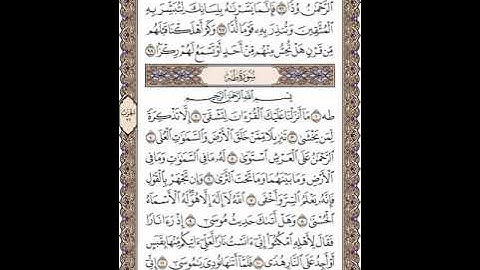 ٱلرَّحْمَٰنُ وُدًّا ٩٦ فَإِنَّمَا يَسَّرْنَٰهُ بِلِسَانِكَ لِتُبَشِّرَ بِهِ
ٱلْمُتَّقِينَ وَتُنذِرَ بِهِۦ قَوْمًا لُّدًّا ٩٧ وَكَمْ أَهْلَكْنَا قَبْلَهُم
مِّن قَرْنٍ هَلْ تُحِسُّ مِنْهُم مِّنْ أَحَدٍ أَوْ تَسْمَعُ لَهُمْ رِكْزًۢا ٩٨
سُورَةُ طه
بِسْمِ ٱللَّهِ ٱلرَّحْمَٰنِ ٱلرَّحِيمِ
طه ١ مَآ أَنزَلْنَا عَلَيْكَ ٱلْقُرْءَانَ لِتَشْقَىٰٓ ٢ إِلَّا تَذْكِرَةً
لِّمَن يَخْشَىٰ ٣ تَنزِيلًا مِّمَّنْ خَلَقَ ٱلْأَرْضَ وَٱلسَّمَٰوَٰتِ ٱلْعُلَى ٤
ٱلرَّحْمَٰنُ عَلَى ٱلْعَرْشِ ٱسْتَوَىٰ ٥ لَهُۥ مَا فِى ٱلسَّمَٰوَٰتِ وَمَا فِى
ٱلْأَرْضِ وَمَا بَيْنَهُمَا وَمَا تَحْتَ ٱلثَّرَىٰ ٦ وَإِن تَجْهَرْ بِٱلْقَوْلِ
فَإِنَّهُۥ يَعْلَمُ ٱلسِّرَّ وَأَخْفَى ٧ ٱللَّهُ لَآ إِلَٰهَ إِلَّا هُوَ لَهُ ٱلْأَسْمَآءُ
ٱلْحُسْنَىٰ ٨ وَهَلْ أَتَىٰكَ حَدِيثُ مُوسَىٰٓ ٩ إِذْ رَءَا نَارًا
فَقَالَ لِأَهْلِهِ ٱمْكُثُوٓا۟ إِنِّىٓ ءَانَسْتُ نَارًا لَّعَلِّىٓ ءَاتِيكُم مِّنْهَا بِقَبَسٍ
أَوْ أَجِدُ عَلَى ٱلنَّارِ هُدًى ١٠ فَلَمَّآ أَتَىٰهَا نُودِىَ يَٰمُوسَىٰٓ ١١ إِنِّىٓ